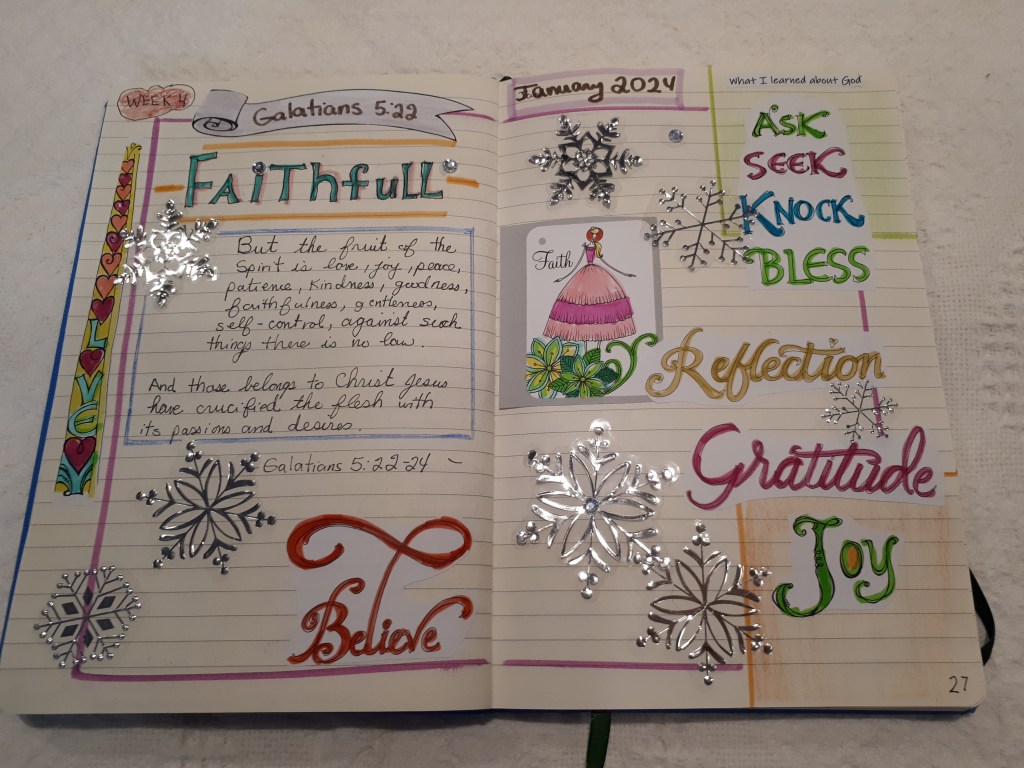 WEEK 4
Galatians 5:22
FAiThfull
LOVE
But the fruit of the
Spirit is love, joy, peace,
patience, kindness, goodness,
faithfulness, gentleness,
self-control, against such
things there is no law.
And those belongs to Christ Jesus
have crucified the flesh with
its passions and desires.
Galatians 5:22-24
I Believe
January 2024
What I learned about God
ASK
SEEK
KNOCK
BLESS
Faith
Reflection
Gratitude
Joy
27